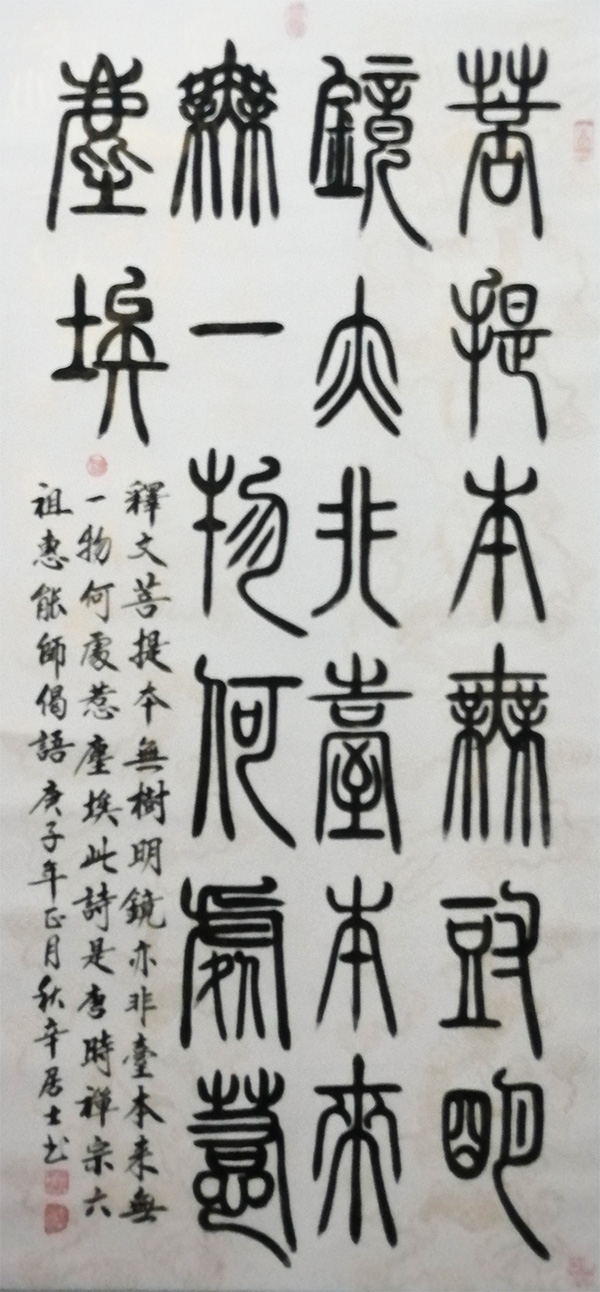 菩提本無尌明
鏡亦非臺本來
無一物何處惹
塵埃
釋文菩提本無樹明鏡亦非臺本来無
一物何處惹塵埃此詩是唐時禪宗六
祖惠能師偈語庚子年正月秋辛居士书